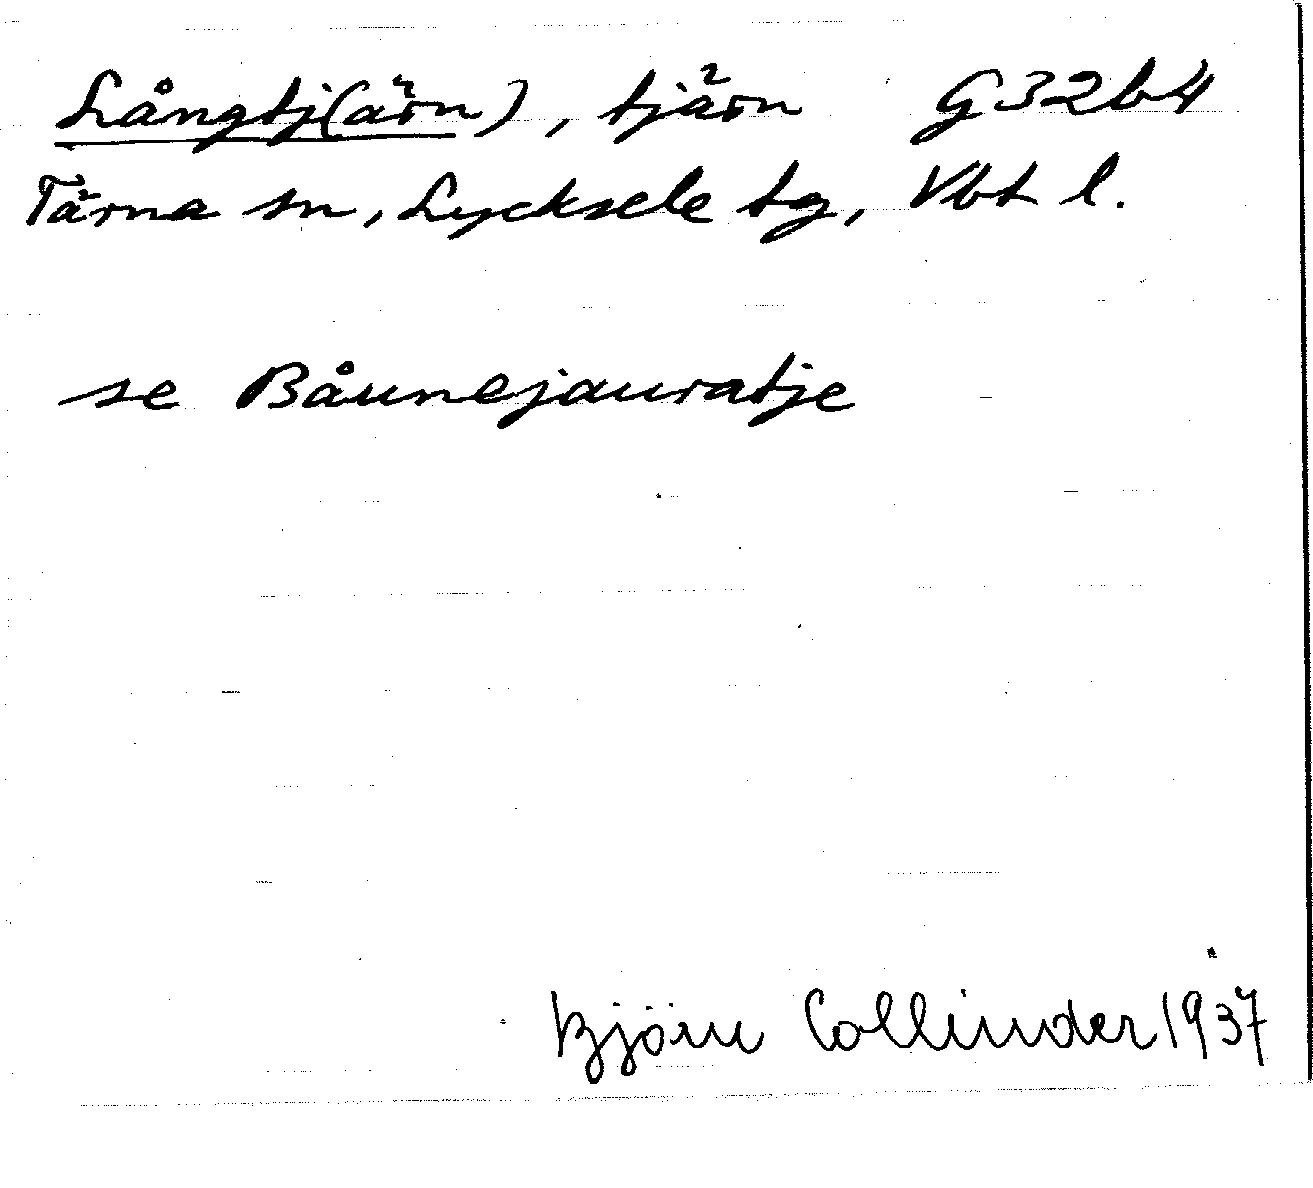 Långtj(ärn), tjärn G32b4
Tärna sn, Lycksele tg, Vbt l.
se Båunejauratje
Björn Collinder 1937